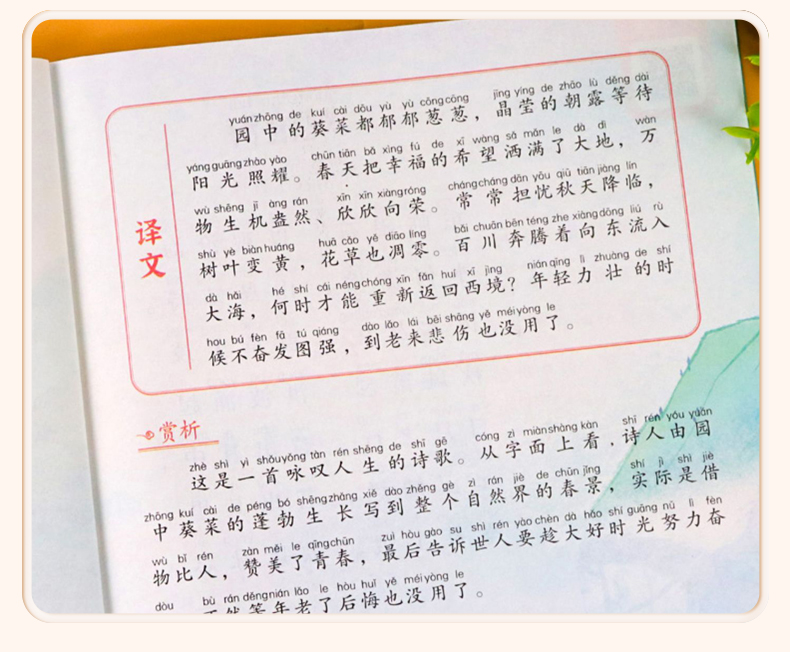 yuán zhōng de kuí cài dōu yù yù cōng cōng jīng yíng de zhāo lù děng dài
园中的葵菜都郁郁葱葱，晶莹的朝露等待
yáng guāng zhào yào chūn tiān bǎ xìng fú de xī wàng sǎ mǎn le dà dì wàn
阳光照耀。春天把幸福的希望洒满了大地，万
wù shēng jī àng rán xīn xīn xiàng róng cháng cháng dān yōu qiū tiān jiàng lín
物生机盎然、欣欣向荣。常常担忧秋天降临，
译文
shù yè biàn huáng huā cǎo yě diāo líng bǎi chuān bēn téng zhe xiàng dōng liú rù
树叶变黄，花草也凋零。百川奔腾着向东流入
dà hǎi hé shí cái néng chóng xīn fǎn huí xī jìng nián qīng lì zhuàng de shí
大海，何时才能重新返回西境？年轻力壮的时
hou bú fèn fā tú qiáng dào lǎo lái bēi shāng yě méi yòng le
候不奋发图强，到老来悲伤也没用了。
赏析
zhè shì yì shǒu yǒng tàn rén shēng de shī gē cóng zì miàn shàng kàn shī rén yóu yuán
这是一首咏叹人生的诗歌。从字面上看，诗人由园
zhōng kuí cài de péng bó shēng zhǎng xiě dào zhěng gè zì rán jiè de chūn jǐng shí jì shì jiè
中葵菜的蓬勃生长写到整个自然界的春景，实际是借
wù bǐ rén zàn měi le qīng chūn zuì hòu gào su shì rén yào chèn dà hǎo shí guāng nǔ lì fèn
物比人，赞美了青春，最后告诉世人要趁大好时光努力奋
dòu bù rán děng nián lǎo le hòu huǐ yě méi yòng le
不然等年老了后悔也没用了。